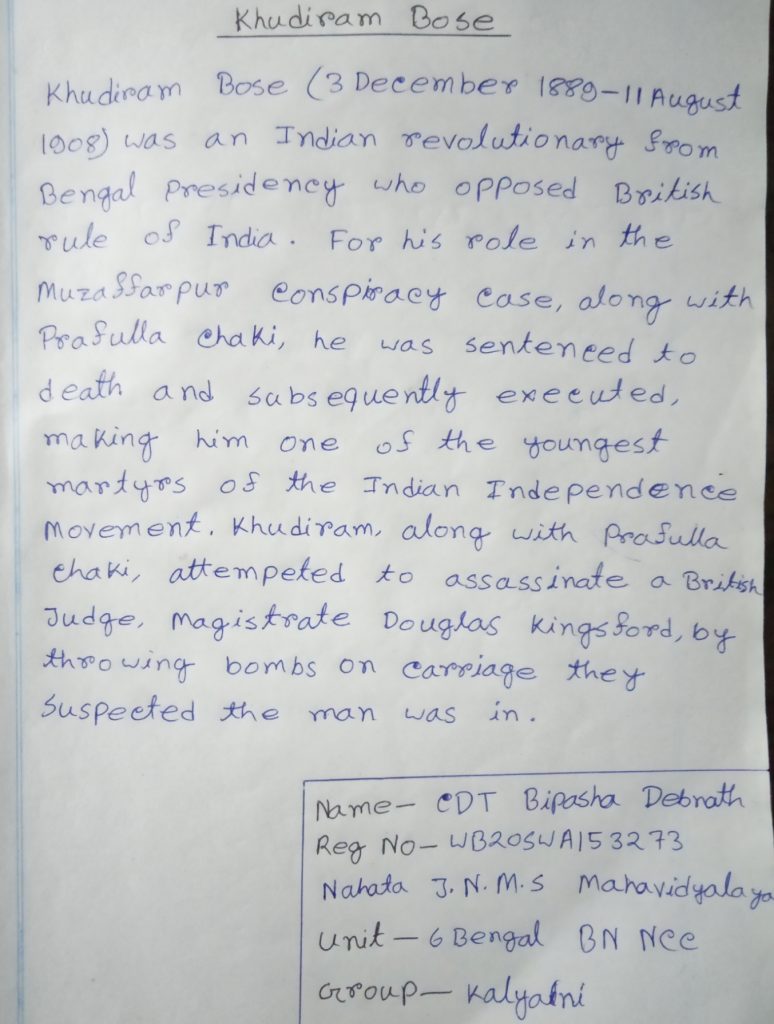 Khudiram Bose
Khudiram Bose (3 December 1889-11 August
1908) was an Indian revolutionary from
Bengal presidency who opposed British
rule of India. For his role in the
Muzaffarpur conspiracy case, along with
Prafulla chaki, he was sentenced to
death and subsequently executed,
making him one of the youngest
martyrs of the Indian Independence
Movement. Khudiram, along with Prafulla
chaki, attempeted to assassinate a British
Judge, Magistrate Douglas Kingsford, by
throwing bombs on carriage they
suspected the man was in.
Name- CDT Bipasha Debnath
Reg No- WB20SWA153273
Nahata J.N.M.S Mahavidyalaya
Unit - 6 Bengal BN NCC
Group- Kalyatni